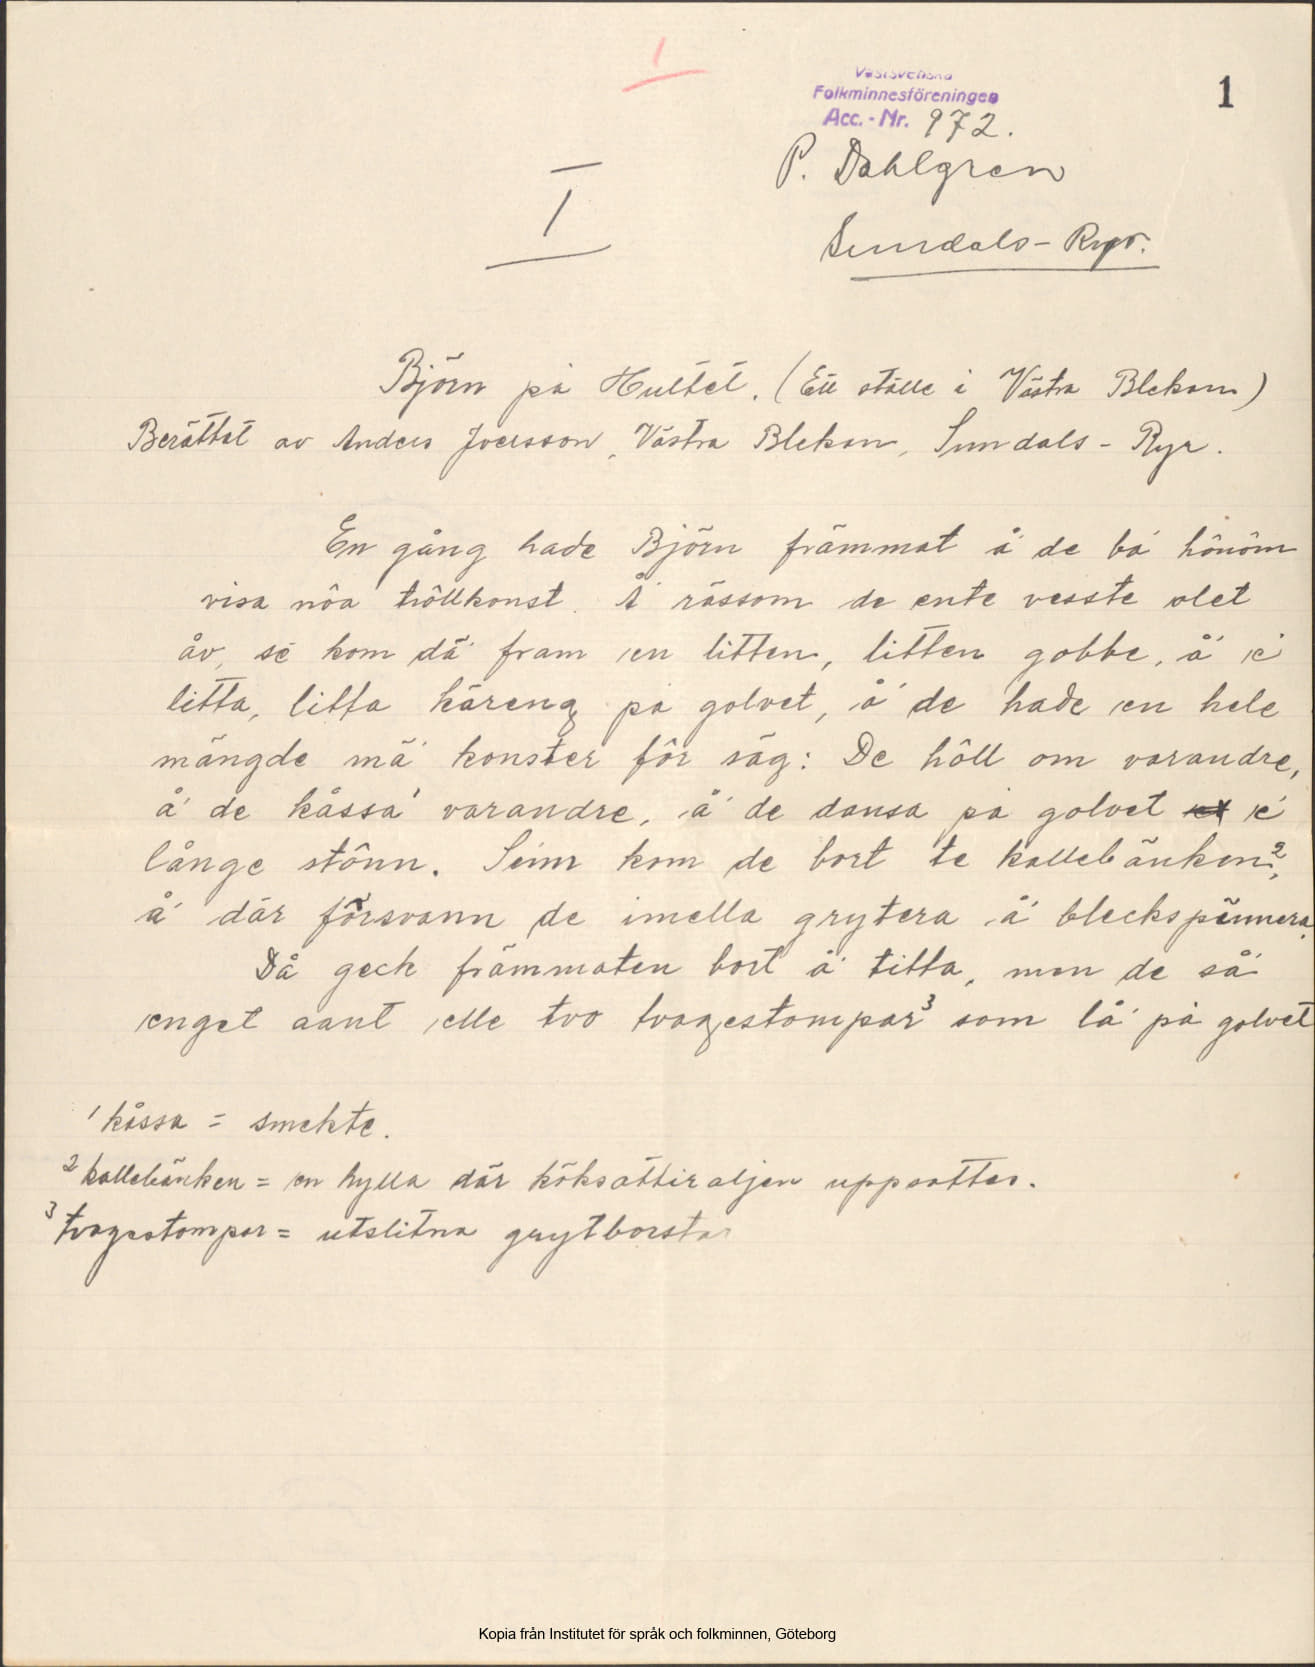 1
Västsvenska
Folkminnesföreningen
Acc.-Nr. 972.
1
P. Dahlgren
I
Sundals-Ryr.
Björn på Hultet. (Ett ställe i Västra Blekan)
Berättat av Anders Iversson, Västra Blekan, Sundals-Ryr.
En gång hade Björn främmat å de bá hônôm
visa nôa trôllkonst. Å rässom de ente vesste olet
åv, sé kom dä fram en litten, litten gobbe, å é
litta, litta käreng på golvet, å de hade en hele
mängde mä konster fôr säg: De hôll om varandre,
å de kåssa¹ varandre, å de dansa på golvet é
långe stônn. Seinn kom de bort te kallebänken²,
å där fôrsvann de imella grytera å bleckspännera.
Då geck främmaten bort å titta, men de så
enget aant elle tvo tvagestompar³ som lå på golvet
¹ kåssa = smekte.
² kallebänken = en hylla där köksattiraljen uppsattes.
³ tvagestompar = utslitna grytborstar
Kopia från Institutet för språk och folkminnen, Göteborg